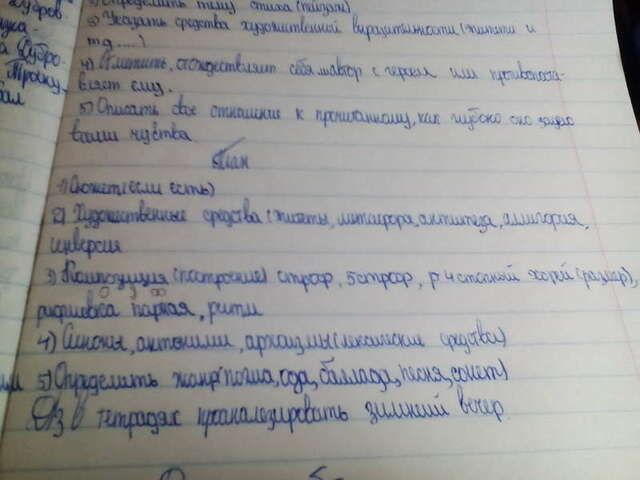 Определить тему стиха (пейзаж)
3) Указать средства художественной выразительности (эпитеты и
т д.....)
4) Отметить, отождествляет себя автор с героем или противопоста-
вляет ему.
5) Описать свое отношение к прочитанному, как глубоко оно задело
ваши чувства
План
1) Сюжет (если есть)
2) Художественные средства (эпитеты, метафора, антитеза, аллигория,
инверсия
3) Композиция (построение) строф, 5 строф, р 4 стопный хорей (размер),
рифмовка парная, ритм
4) Синоны, антонимы, архаизмы (лексические средства)
5) Определить жанр (поэма, ода, баллада, песня, сонет)
Дз в тетрадях проанализировать зимний вечер.